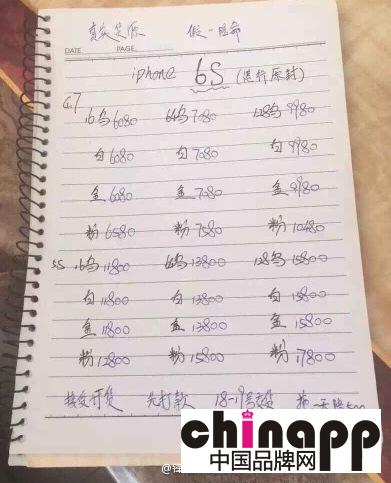 真实货源 假一赔命
DATE PAGE
iphone 6S (送行原封)
4.7 16乌6080 64乌7080 128乌9980
白6080 白7080 白9980
金6080 金7080 金9980
粉6580 粉7580 粉10480
5S 16乌11800 64乌13800 128乌15800
白11800 白13800 白15800
金11800 金13800 金15800
粉12800 粉15800 粉17800
接受订货 先打款 18-19号发货
chinapp
中国品牌网